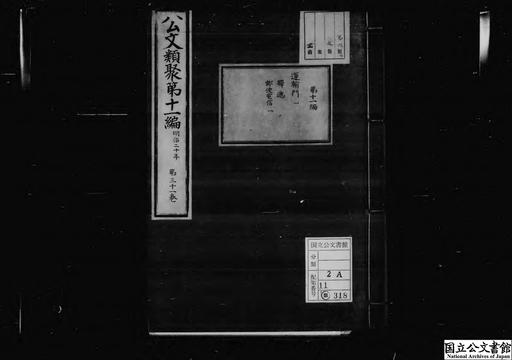 公文類聚第十一編
明治二十年
第三十一巻
第十一編
運輸門一
驛逓
郵便電信一
国立公文書館
分類
配架番号
2 A
11
318
国立公文書館
National Archives of Japan